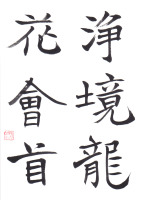 浄境龍
花會首